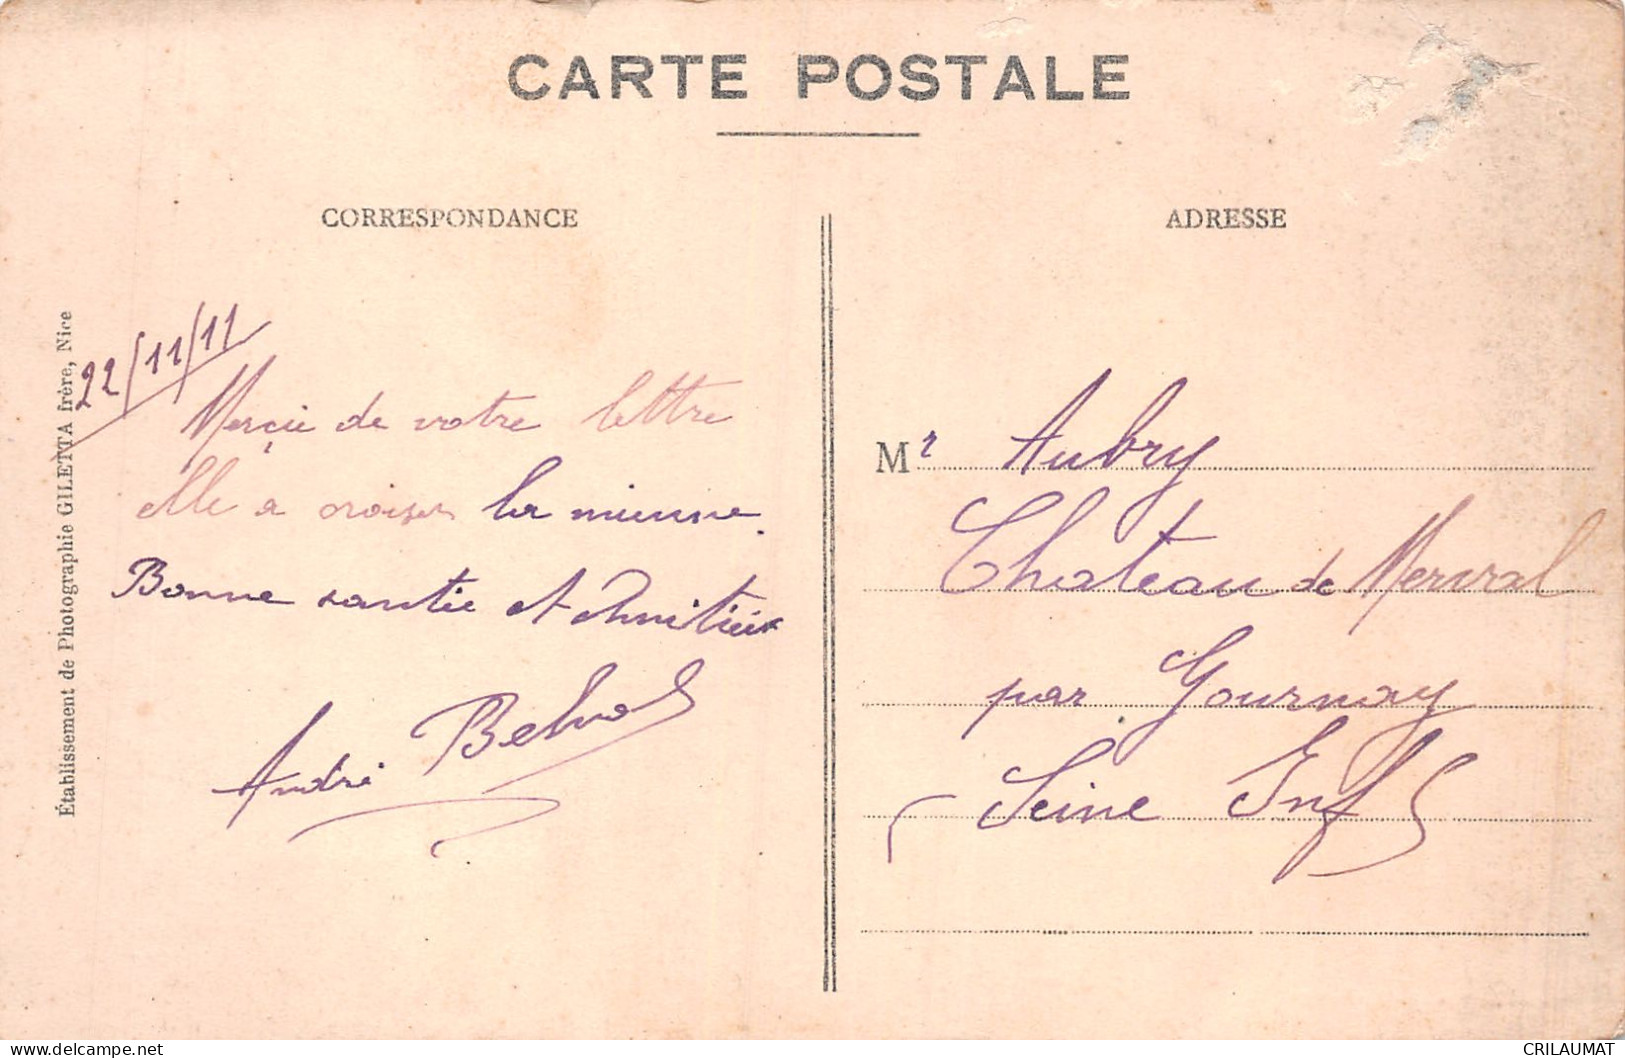 CARTE POSTALE
CORRESPONDANCE
ADRESSE
Établissement de Photographie GILETTA frère, Nice
22/11/11
Merçie de votre lettre
elle a croiser la mienne.
Bonne santie et Amitiées
André
Mr Aubry
Chateau de Merval
par Gournay
Seine Inf
CRILAUMAT